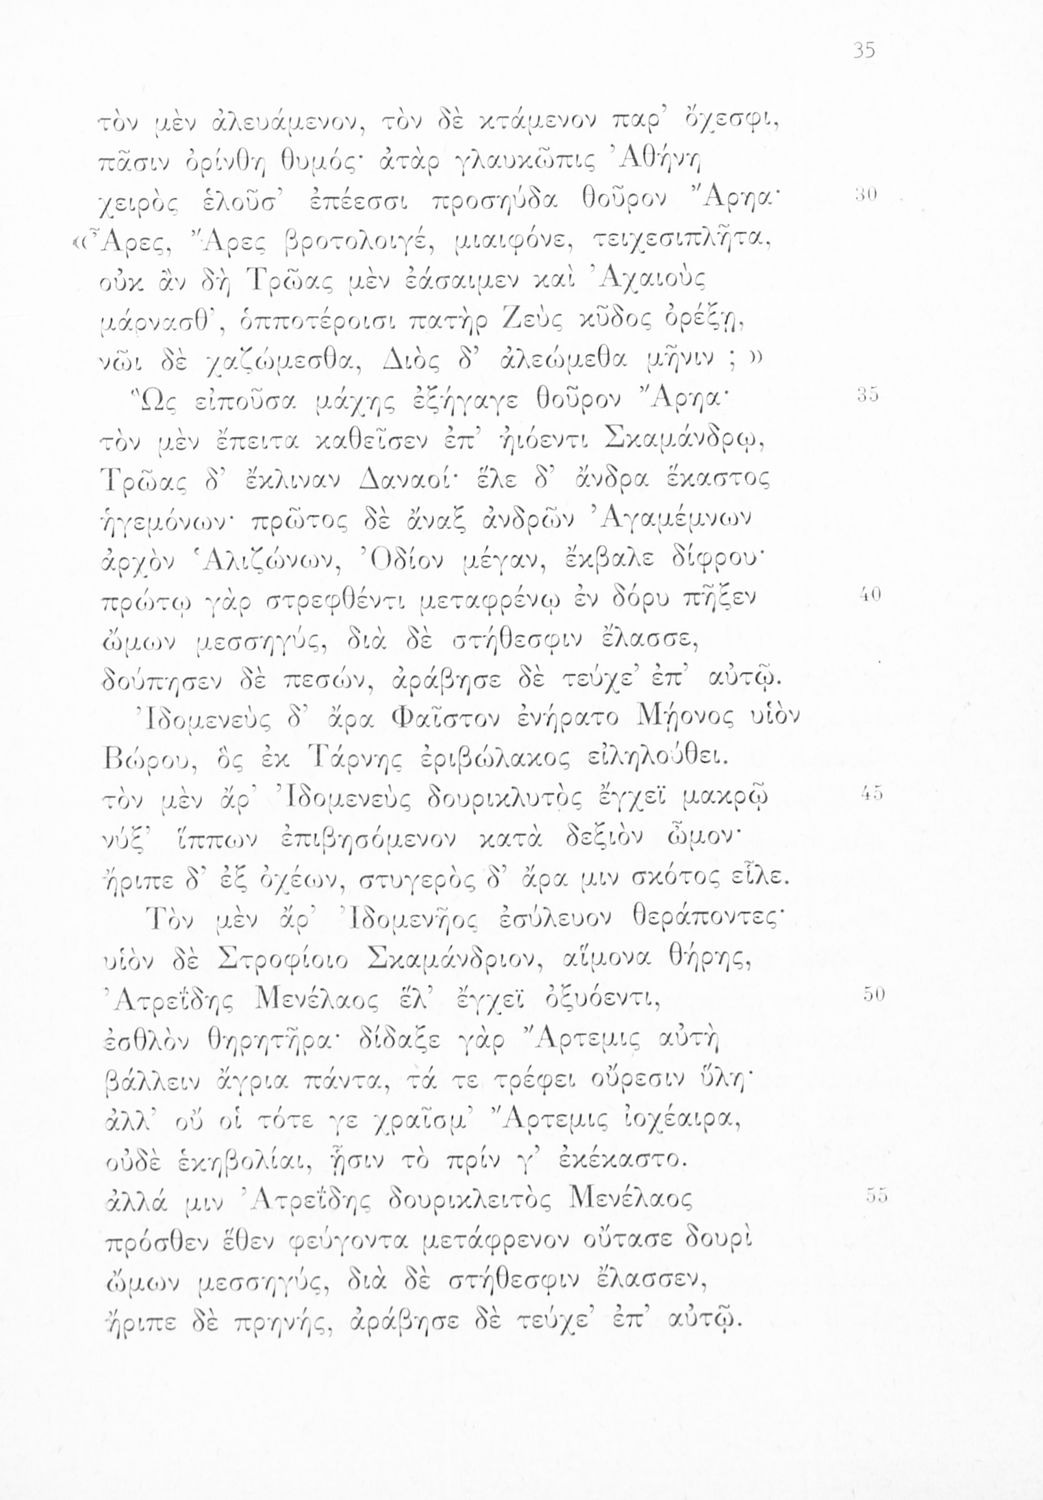 35
τὸν μὲν ἀλευάμενον, τὸν δὲ κτάμενον παρ’ ὄχεσφι,
πᾶσιν ὀρίνθη θυμός· ἀτὰρ γλαυκῶπις Ἀθήνη
χειρὸς ἑλοῦσ’ ἐπέεσσι προσηύδα θοῦρον Ἄρηα· 30
«Ἆρες, Ἄρες βροτολοιγέ, μιαιφόνε, τειχεσιπλῆτα,
οὐκ ἂν δὴ Τρῶας μὲν ἐάσαιμεν καὶ Ἀχαιοὺς
μάρνασθ’, ὁπποτέροισι πατὴρ Ζεὺς κῦδος ὀρέξῃ,
νῶι δὲ χαζώμεσθα, Διὸς δ’ ἀλεώμεθα μῆνιν ; »
Ὣς εἰποῦσα μάχης ἐξήγαγε θοῦρον Ἄρηα· 35
τὸν μὲν ἔπειτα καθεῖσεν ἐπ’ ἠιόεντι Σκαμάνδρῳ,
Τρῶας δ’ ἔκλιναν Δαναοί· ἕλε δ’ ἄνδρα ἕκαστος
ἡγεμόνων· πρῶτος δὲ ἄναξ ἀνδρῶν Ἀγαμέμνων
ἀρχὸν Ἁλιζώνων, Ὀδίον μέγαν, ἔκβαλε δίφρου·
πρώτῳ γὰρ στρεφθέντι μεταφρένῳ ἐν δόρυ πῆξεν 40
ὤμων μεσσηγύς, διὰ δὲ στήθεσφιν ἔλασσε,
δούπησεν δὲ πεσών, ἀράβησε δὲ τεύχε’ ἐπ’ αὐτῷ.
Ἰδομενεὺς δ’ ἄρα Φαῖστον ἐνήρατο Μῄονος υἱὸν
Βώρου, ὃς ἐκ Τάρνης ἐριβώλακος εἰληλούθει.
τὸν μὲν ἄρ’ Ἰδομενεὺς δουρικλυτὸς ἔγχεϊ μακρῷ 45
νύξ’ ἵππων ἐπιβησόμενον κατὰ δεξιὸν ὦμον·
ἤριπε δ’ ἐξ ὀχέων, στυγερὸς δ’ ἄρα μιν σκότος εἷλε.
Τὸν μὲν ἄρ’ Ἰδομενῆος ἐσύλευον θεράποντες·
υἱὸν δὲ Στροφίοιο Σκαμάνδριον, αἵμονα θήρης,
Ἀτρεΐδης Μενέλαος ἕλ’ ἔγχεϊ ὀξυόεντι, 50
ἐσθλὸν θηρητῆρα· δίδαξε γὰρ Ἄρτεμις αὐτὴ
βάλλειν ἄγρια πάντα, τά τε τρέφει οὔρεσιν ὕλη·
ἀλλ’ οὔ οἱ τότε γε χραῖσμ’ Ἄρτεμις ἰοχέαιρα,
οὐδὲ ἑκηβολίαι, ᾗσιν τὸ πρίν γ’ ἐκέκαστο.
ἀλλά μιν Ἀτρεΐδης δουρικλειτὸς Μενέλαος 55
πρόσθεν ἕθεν φεύγοντα μετάφρενον οὔτασε δουρὶ
ὤμων μεσσηγύς, διὰ δὲ στήθεσφιν ἔλασσεν,
ἤριπε δὲ πρηνής, ἀράβησε δὲ τεύχε’ ἐπ’ αὐτῷ.